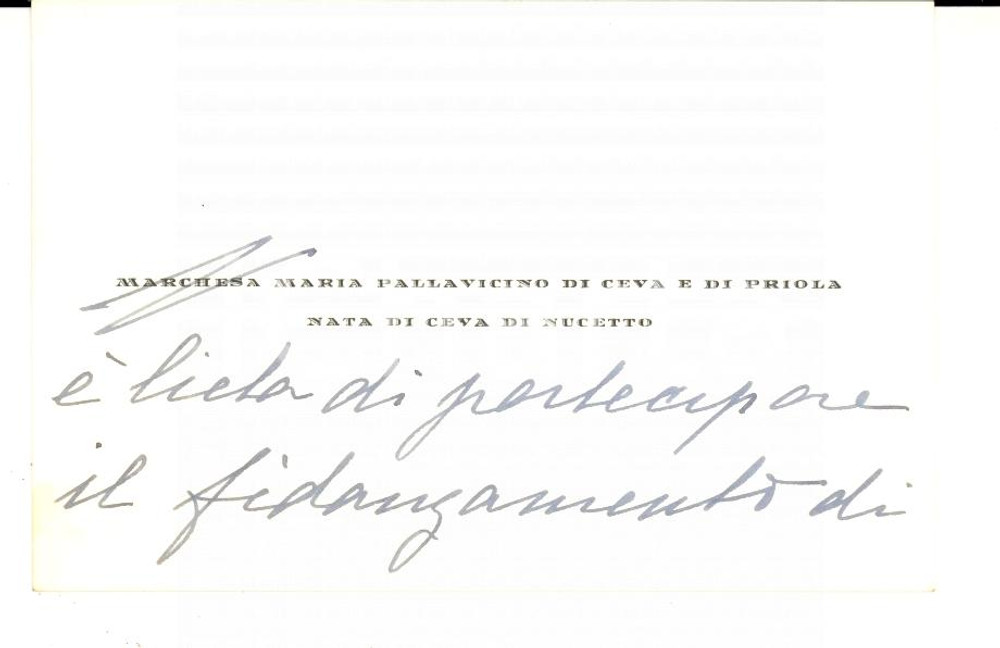 MARCHESA MARIA PALLAVICINO DI CEVA E DI PRIOLA
NATA DI CEVA DI NUCETTO
è lieta di partecipare
il fidanzamento di